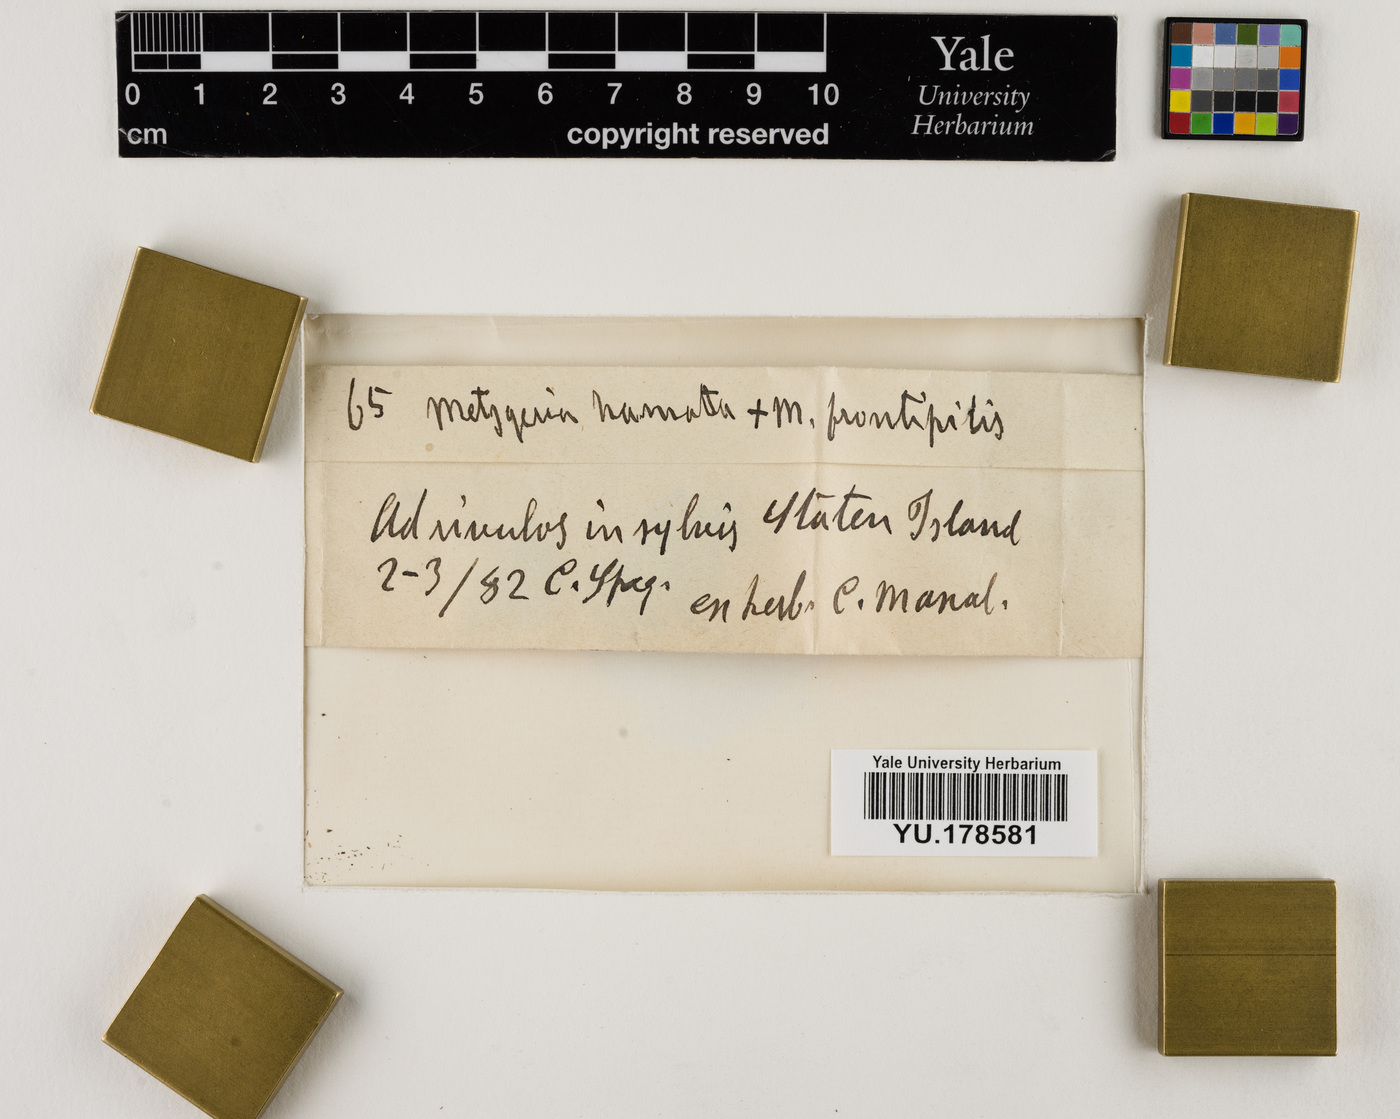 0 1 2 3 4 5 6 7 8 9 10
cm
copyright reserved
Yale
University
Herbarium
65 Metzgeria hamata + M. frontipilis
Ad rivulos in sylvis Staten Island
2-3/82 C. Speg. ex herb. C. Masal.
Yale University Herbarium
YU.178581